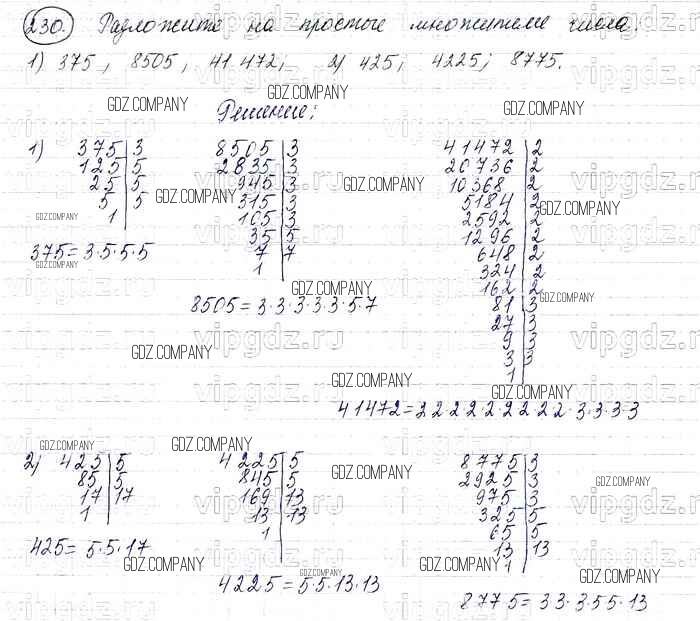 230. Разложите на простые множители числа.
1) 375, 8505, 41 472, 2) 425; 4225; 8775.
Решение:
1)
375|3
125|5
25|5
5|5
1
375 = 3·5·5·5
8505|3
2835|3
945|3
315|3
105|3
35|5
7|7
1
8505 = 3·3·3·3·3·5·7
41472|2
20736|2
10368|2
5184|2
2592|2
1296|2
648|2
324|2
162|2
81|3
27|3
9|3
3|3
1
41472 = 2 2 2 2 2·2 2 2 2·3·3·3·3
2)
425|5
85|5
17|17
1
425 = 5·5·17
4225|5
845|5
169|13
13|13
1
4225 = 5·5·13·13
8775|3
2925|3
975|3
325|5
65|5
13|13
1
8775 = 3 3·3·5 5·13
GDZ.COMPANY
vipgdz.ru